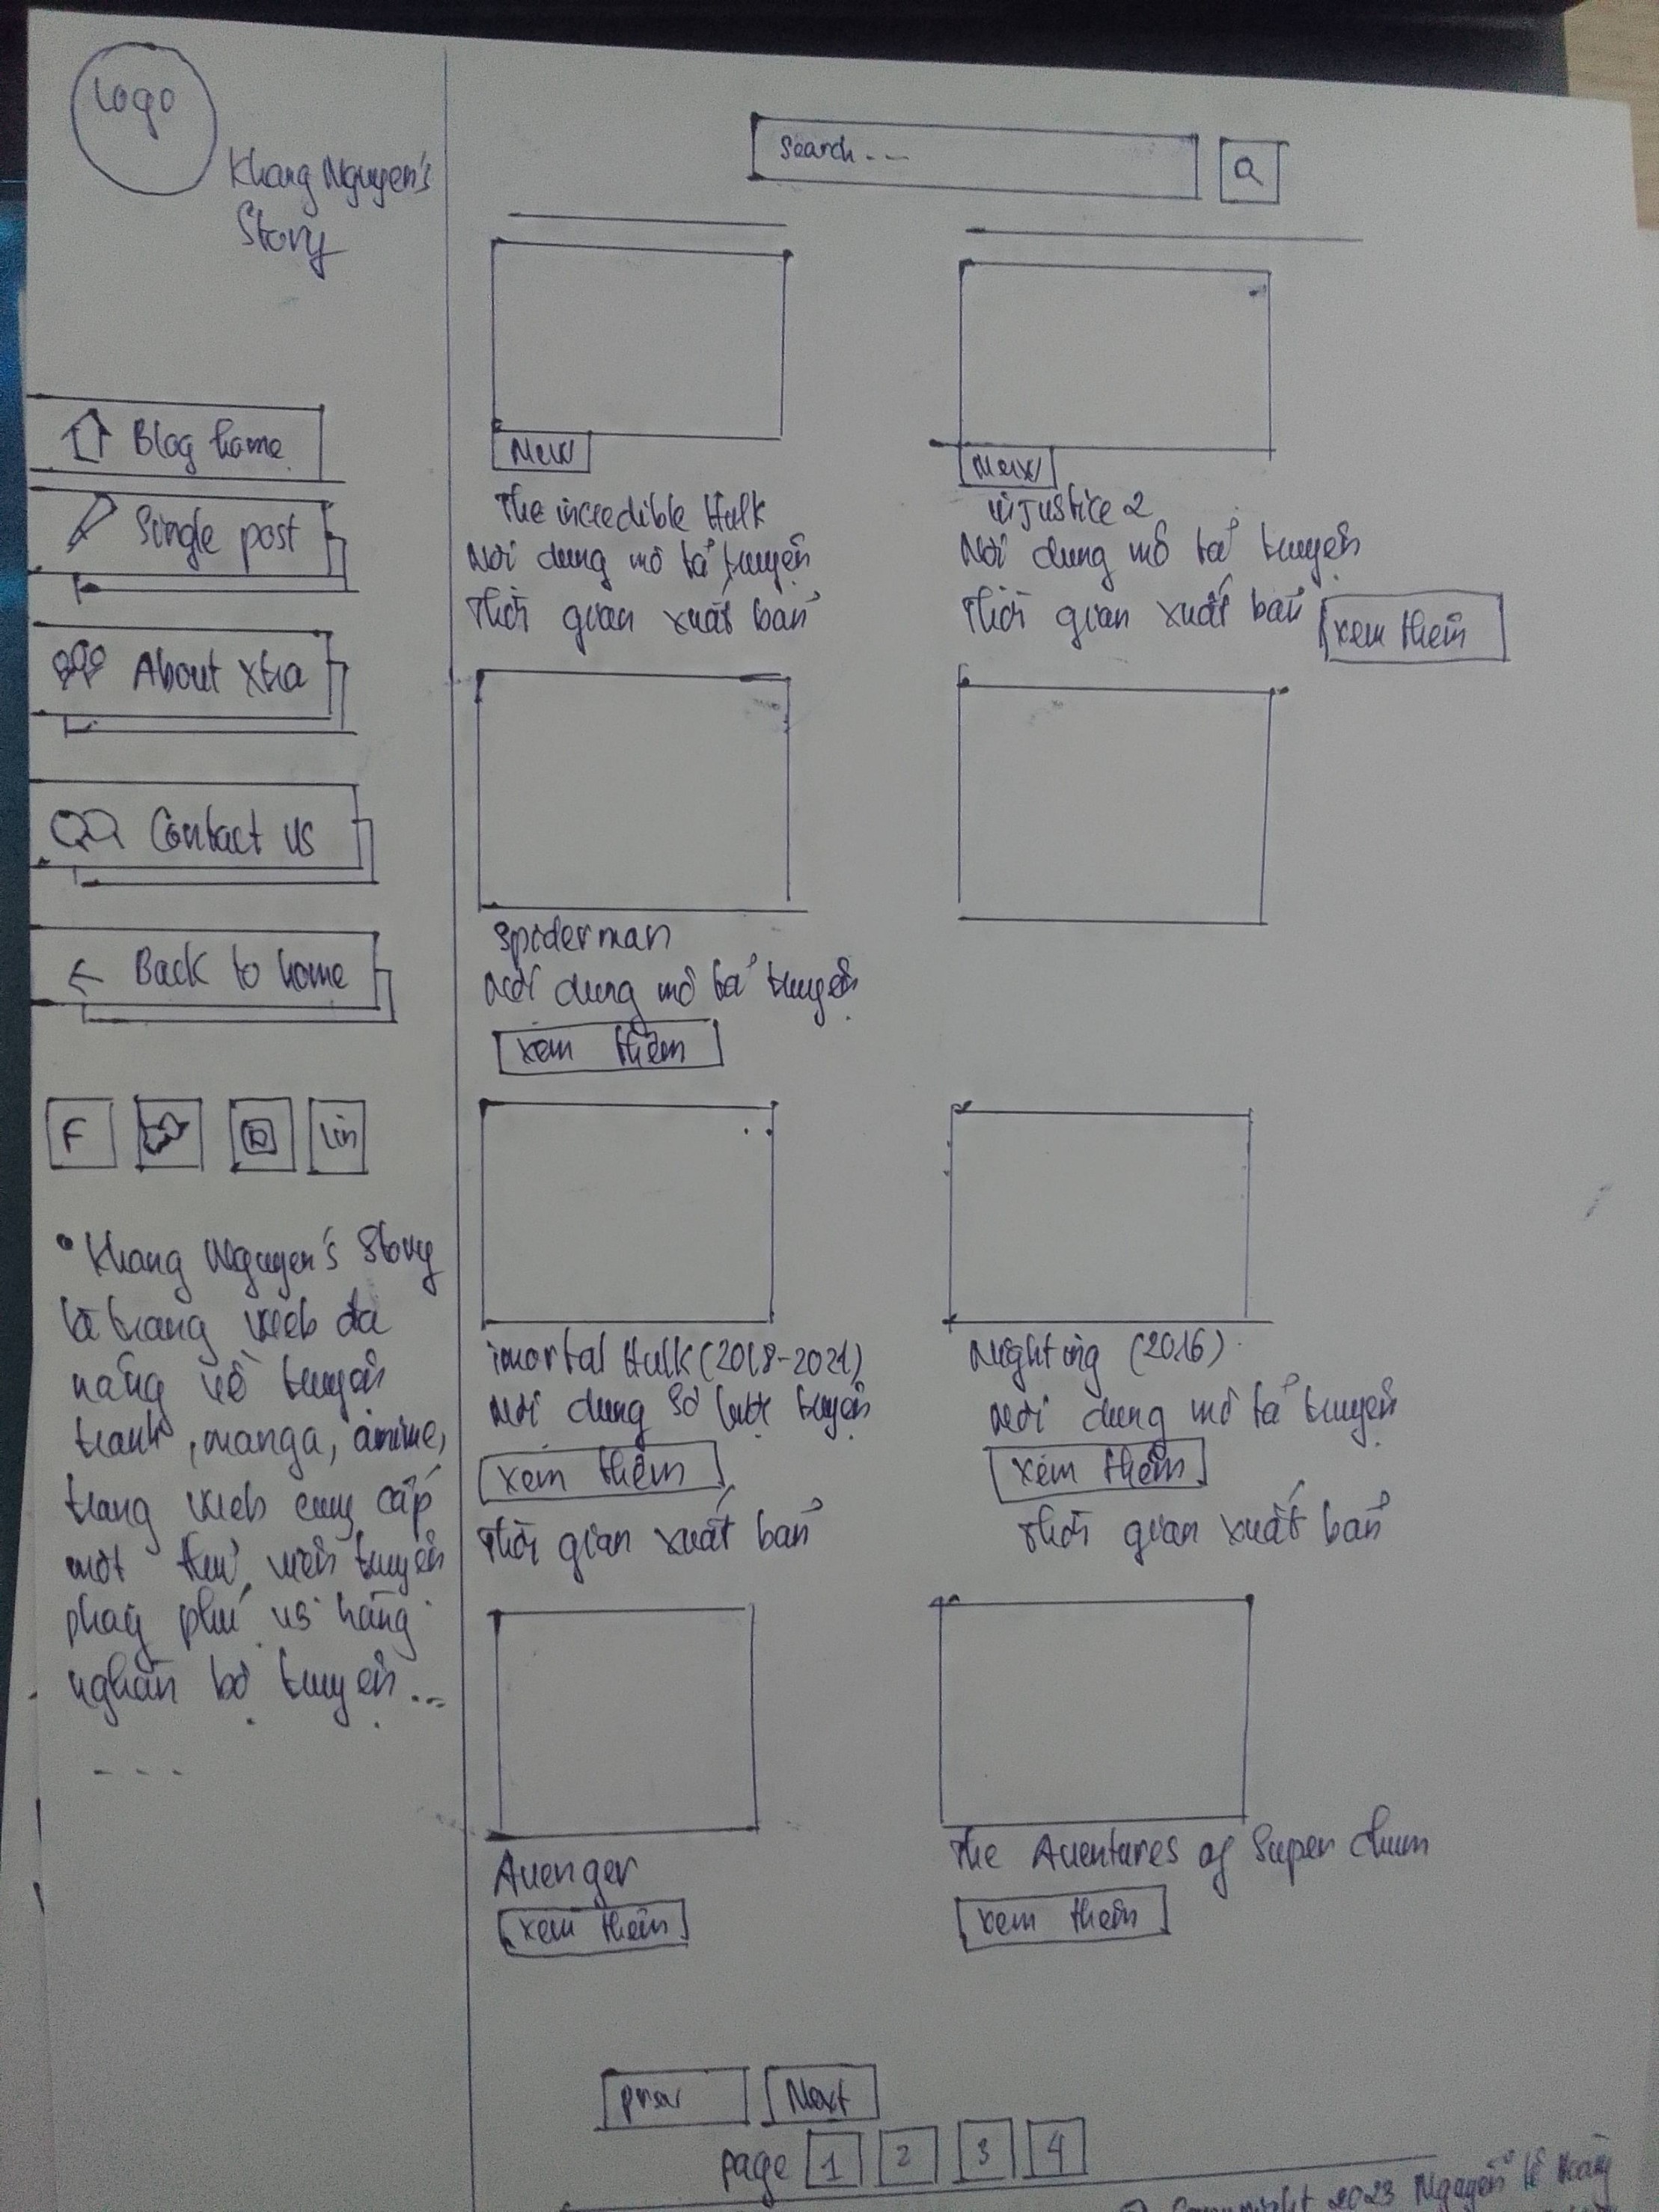 Logo
Khang Nguyen's
Story
Blog home
Single post
About Xtra
Contact us
Back to home
F
in
• Khang Nguyen's Story
là trang web đa
năng về truyện
tranh, manga, anime,
trang web cung cấp
một thư viện truyện
phong phú với hàng
nghàn bộ truyện...
- - -
Search - - -
New
The incredible Hulk
Nội dung mô tả truyện
Thời gian xuất bản
New
injustice 2
Nội dung mô tả truyện
Thời gian xuất bản
xem thêm
Spiderman
Nội dung mô tả truyện
xem thêm
imortal Hulk (2018-2021)
Nội dung sơ lược truyện
xem thêm
Thời gian xuất bản
Nighting (2016)
Nội dung mô tả truyện
xem thêm
Thời gian xuất bản
Avenger
xem thêm
The Aventures of Super
xem thêm
prev
Next
page 1 2 3 4
2023 Nguyễn lê